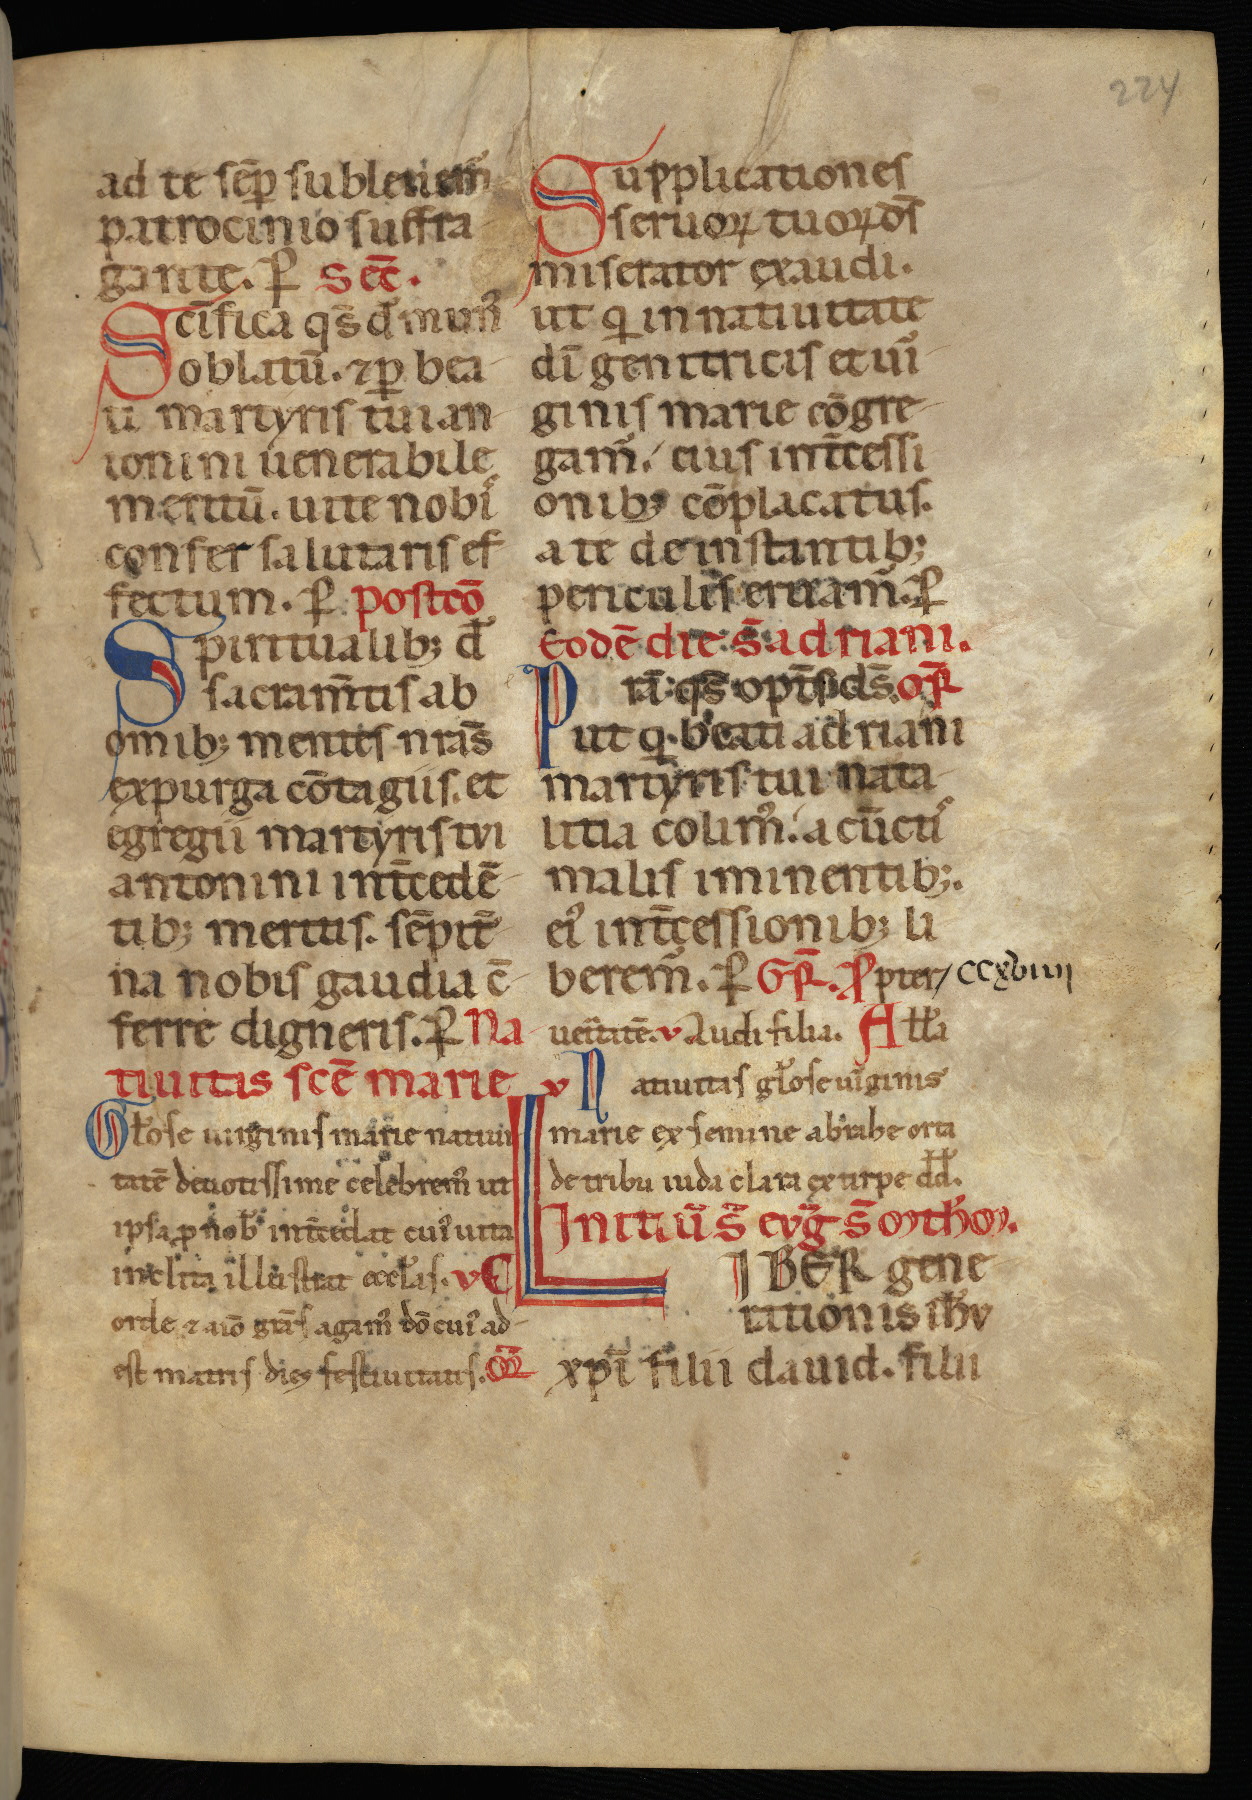 224
ad te sēp subleuem᷑
patrocinio suffra
gante. ꝑ Sēc.
Scīfica qs̄ dn̄e mun᷑
oblatū. ⁊ ꝑ bea
ti martyris tui an
tonini uenerabile
meritū. uite nobi᷑
confer salutaris ef
fectum. ꝑ postcō
Spiritualib; dn̄e
sacram̄tis ab
omib; mentes nr̄as
expurga cōtagiis. et
egregii martyris tvi
antonini int̄cedē
tib; meritis. sēpit̄
na nobis gaudia cō
ferre digneris. ꝑ Na
tiuitis scē marie
Gl̄ose uirginis marie natiui
tatē deuotissime celebrem᷑ ut
ipsa ꝓ nob᷑ int̄cedat cui᷑ uita
inclita illustrat eccl̄as. v C
orde ⁊ aīo gr̄as agam᷑ dō cui᷑ ad
est matris dies festiuitatis. Or̄
Supplicationes
seruoꝝ tuoꝝ ds̄
miserator exaudi.
ut qi in natiuitate
dī genitricis et uir᷑
ginis marie cōgre
gam᷑. eius int̄cessi
onib; cōplacatus.
a te de instantib;
periculis eruam᷑. ꝑ
Eodē die. s̄ adriani.
Pra᷑. qs̄ opīps ds̄. or̄
ut qi beati adriani
martyris tui nata
litia colim᷑. a cūcti᷑
malis iminentib;.
ei᷑ int̄cessionib; li
berem᷑. ꝑ Gr̄. Ꝓpter / ccxviiii
ueritatē. v Audi filia. All̄a
v Natiuitas gl̄ose uirginis
marie ex semine abrahe orta
de tribu iuda clara ex stirpe dd̄.
Initiū s̄ evḡ. s̄ matho᷑.
LIBER gene
rationis ih̄v
xp̄i filii dauid. filii